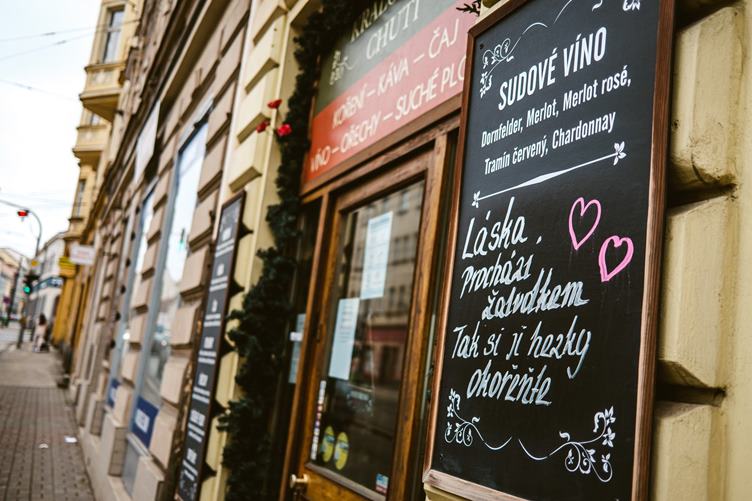 CHUTI
KOŘENÍ – KÁVA – ČAJ
VÍNO – OŘECHY – SUCHÉ
SUDOVÉ VÍNO
Dornfelder, Merlot, Merlot rosé,
Tramín červený, Chardonnay
Láska
Prochází
žaludkem
Tak si jí hezky
okořeňte